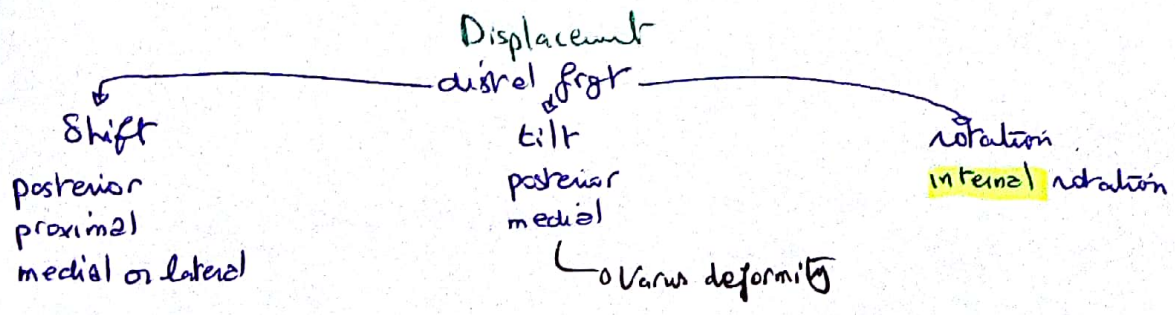 Displacement
distal frgt
Shift
posterior
proximal
medial or lateral
tilt
posterior
medial
Varus deformity
rotation
internal rotation